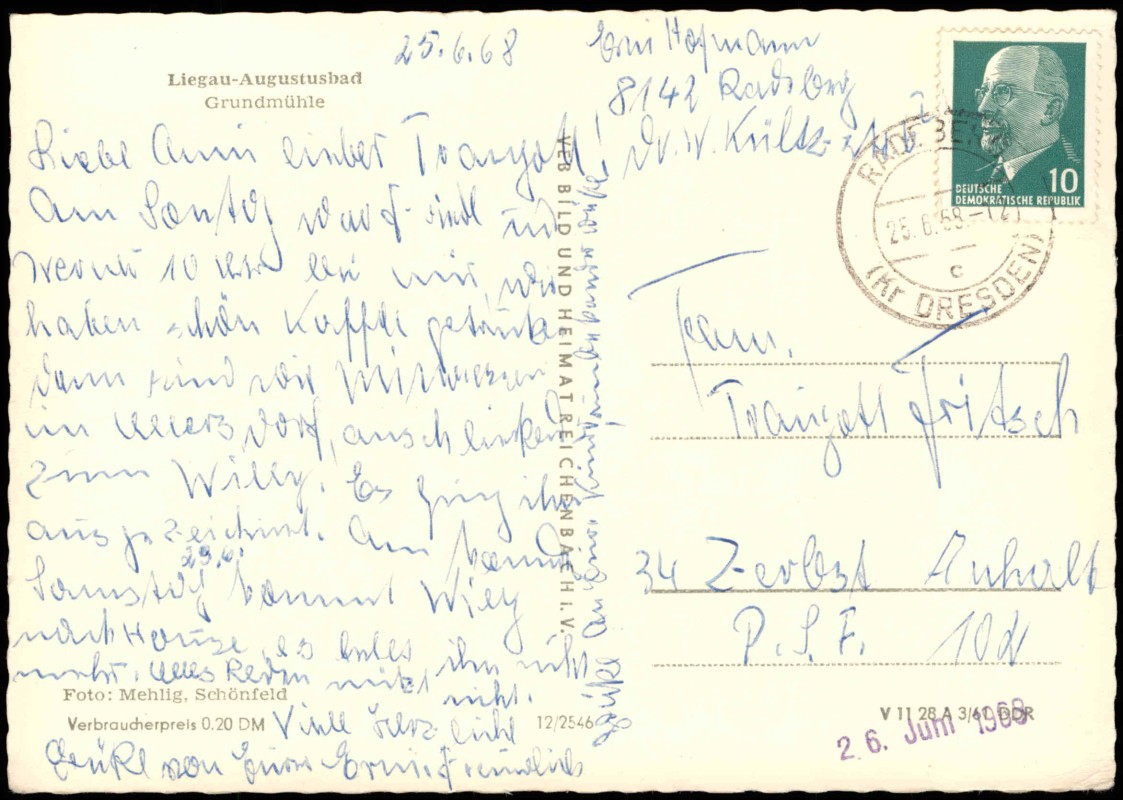 25.6.68
Liegau-Augustusbad
Grundmühle
Erni Hofmann
8142 Radeberg
Dr. W. Külz
Liebe Anni lieber Traugott!
Am Sontag
Werner 10 Uhr bei mir, wir
haben schön Kaffee getrunken
dann sind wir Mittagessen
im Ullersdorf, anschließend
zum Willy. Es ging ihm
ausgezeichnet. Am
Samstag 29.6. kommt Willy
nach Hause, es ihn nicht
mehr. alles Reden nützt nicht.
Viele herzliche
Grüße von Eurer Erni
Grüße an
VEB BILD UND HEIMAT REICHENBACH I. V.
Foto: Mehlig, Schönfeld
Verbraucherpreis 0.20 DM
12/2546
DEUTSCHE
DEMOKRATISCHE REPUBLIK
10
RADEBERG
25.6.68-12
c
(Kr DRESDEN)
Fam.
Traugott Fritsch
34 Zerbst Anhalt
P.S.F. 102
V 11 28 A 3/61 DDR
26. Juni 1968